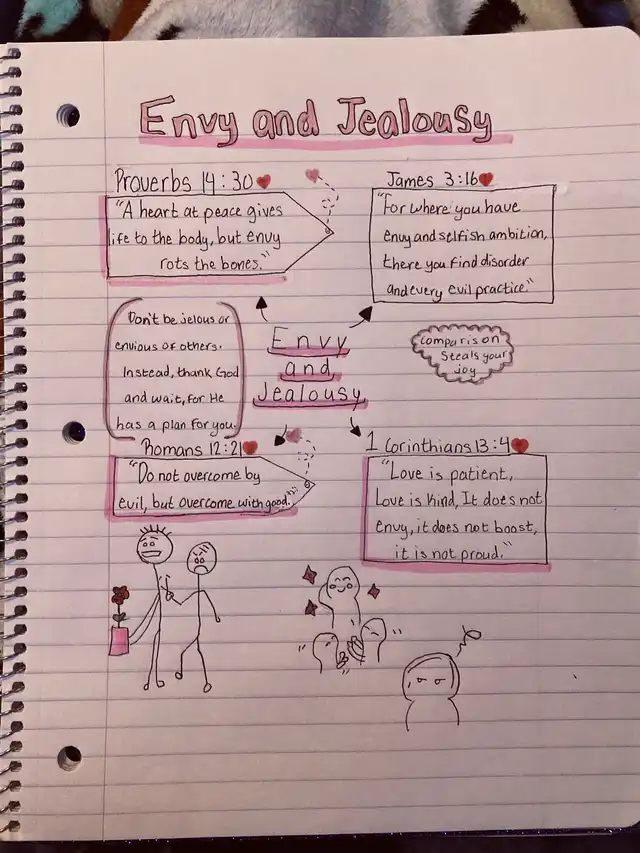 Envy and Jealousy
Proverbs 14:30
"A heart at peace gives
life to the body, but envy
rots the bones."
James 3:16
"For where you have
envy and selfish ambition,
there you find disorder
and every evil practice."
Don't be jelous or
envious of others.
Instead, thank God
and wait, for He
has a plan for you.
Envy
and
Jealousy
comparison
Steals your
joy
Romans 12:21
"Do not overcome by
evil, but overcome with good."
1 Corinthians 13:4
"Love is patient,
Love is kind, It does not
envy, it does not boast,
it is not proud."